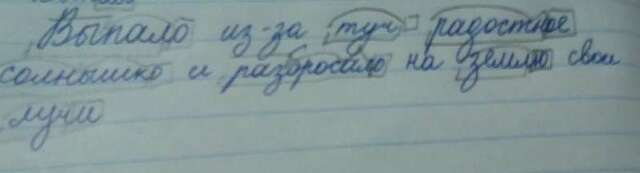 Выпало из-за туч радостное
солнышко и разбросало на землю свои
лучи